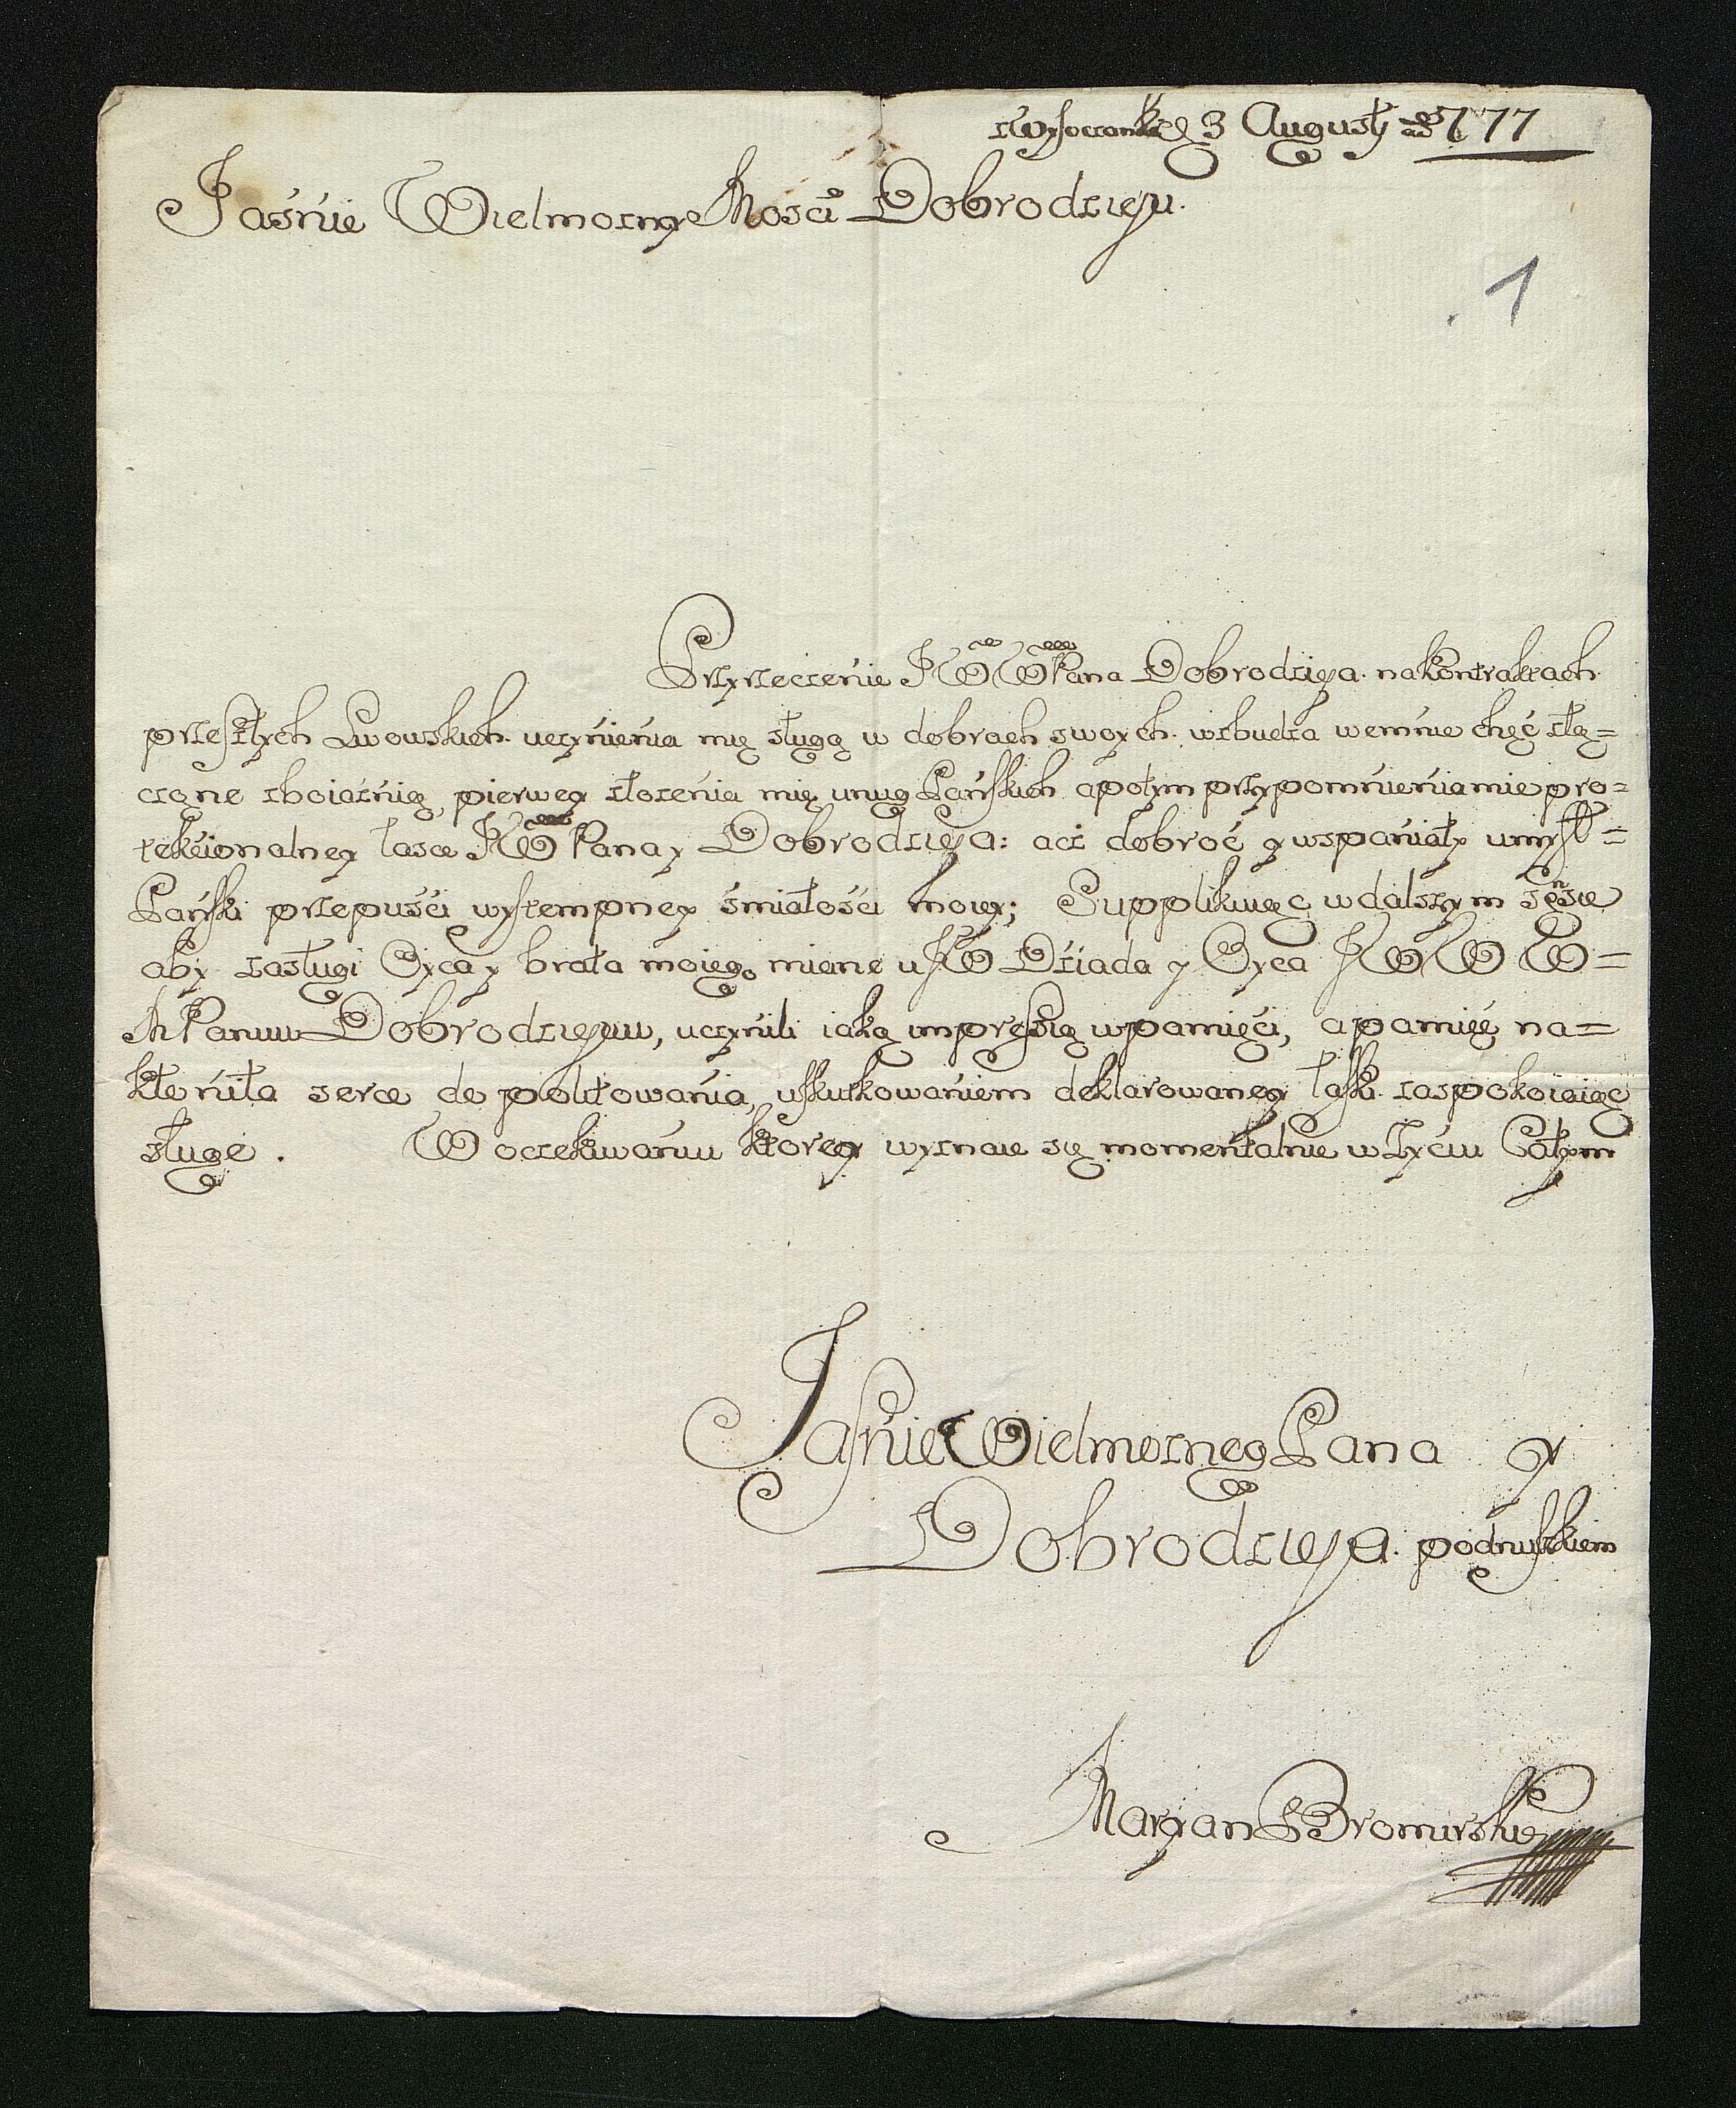 z Wysoczanki 3 Augusty 777
Jaśnie Wielmozny Mosci Dobrodzieju.
1
Przyrzeczenie JW W Pana Dobrodzieja. na Kontraktach
przeszłych Lwowskich. uczynienia mię sługą w dobrach swoych. wzbudza wemnie chęć złą=
czone zboiaźnią, pierwey złozenia mię unug Pańskich apotym przypomnienia mie pro=
tekcionalney łasce JW Pana y Dobrodzieja: acz dobroć y wspaniały umysł=
Pański przepuści wystempney śmiałości mowy; Supplikuięc wdalszym sęnsie
aby zasługi Oyca y brata moiego miane u JW Dziada y Oyca JW W W=
M Panuu Dobrodziejuu, uczynili iaką impresią wpamięci, a pamięć na=
kłoniła serce do politowania, uskutkowaniem deklarowaney łaski. zaspokoiaiąc
sługę. W oczekiwaniu ktorey wyznaie się momentalnie w Zyciu Całym
Jaśnie Wielmoznego Pana y
Dobrodzieja. podnuszkiem
Maryan Bromirski